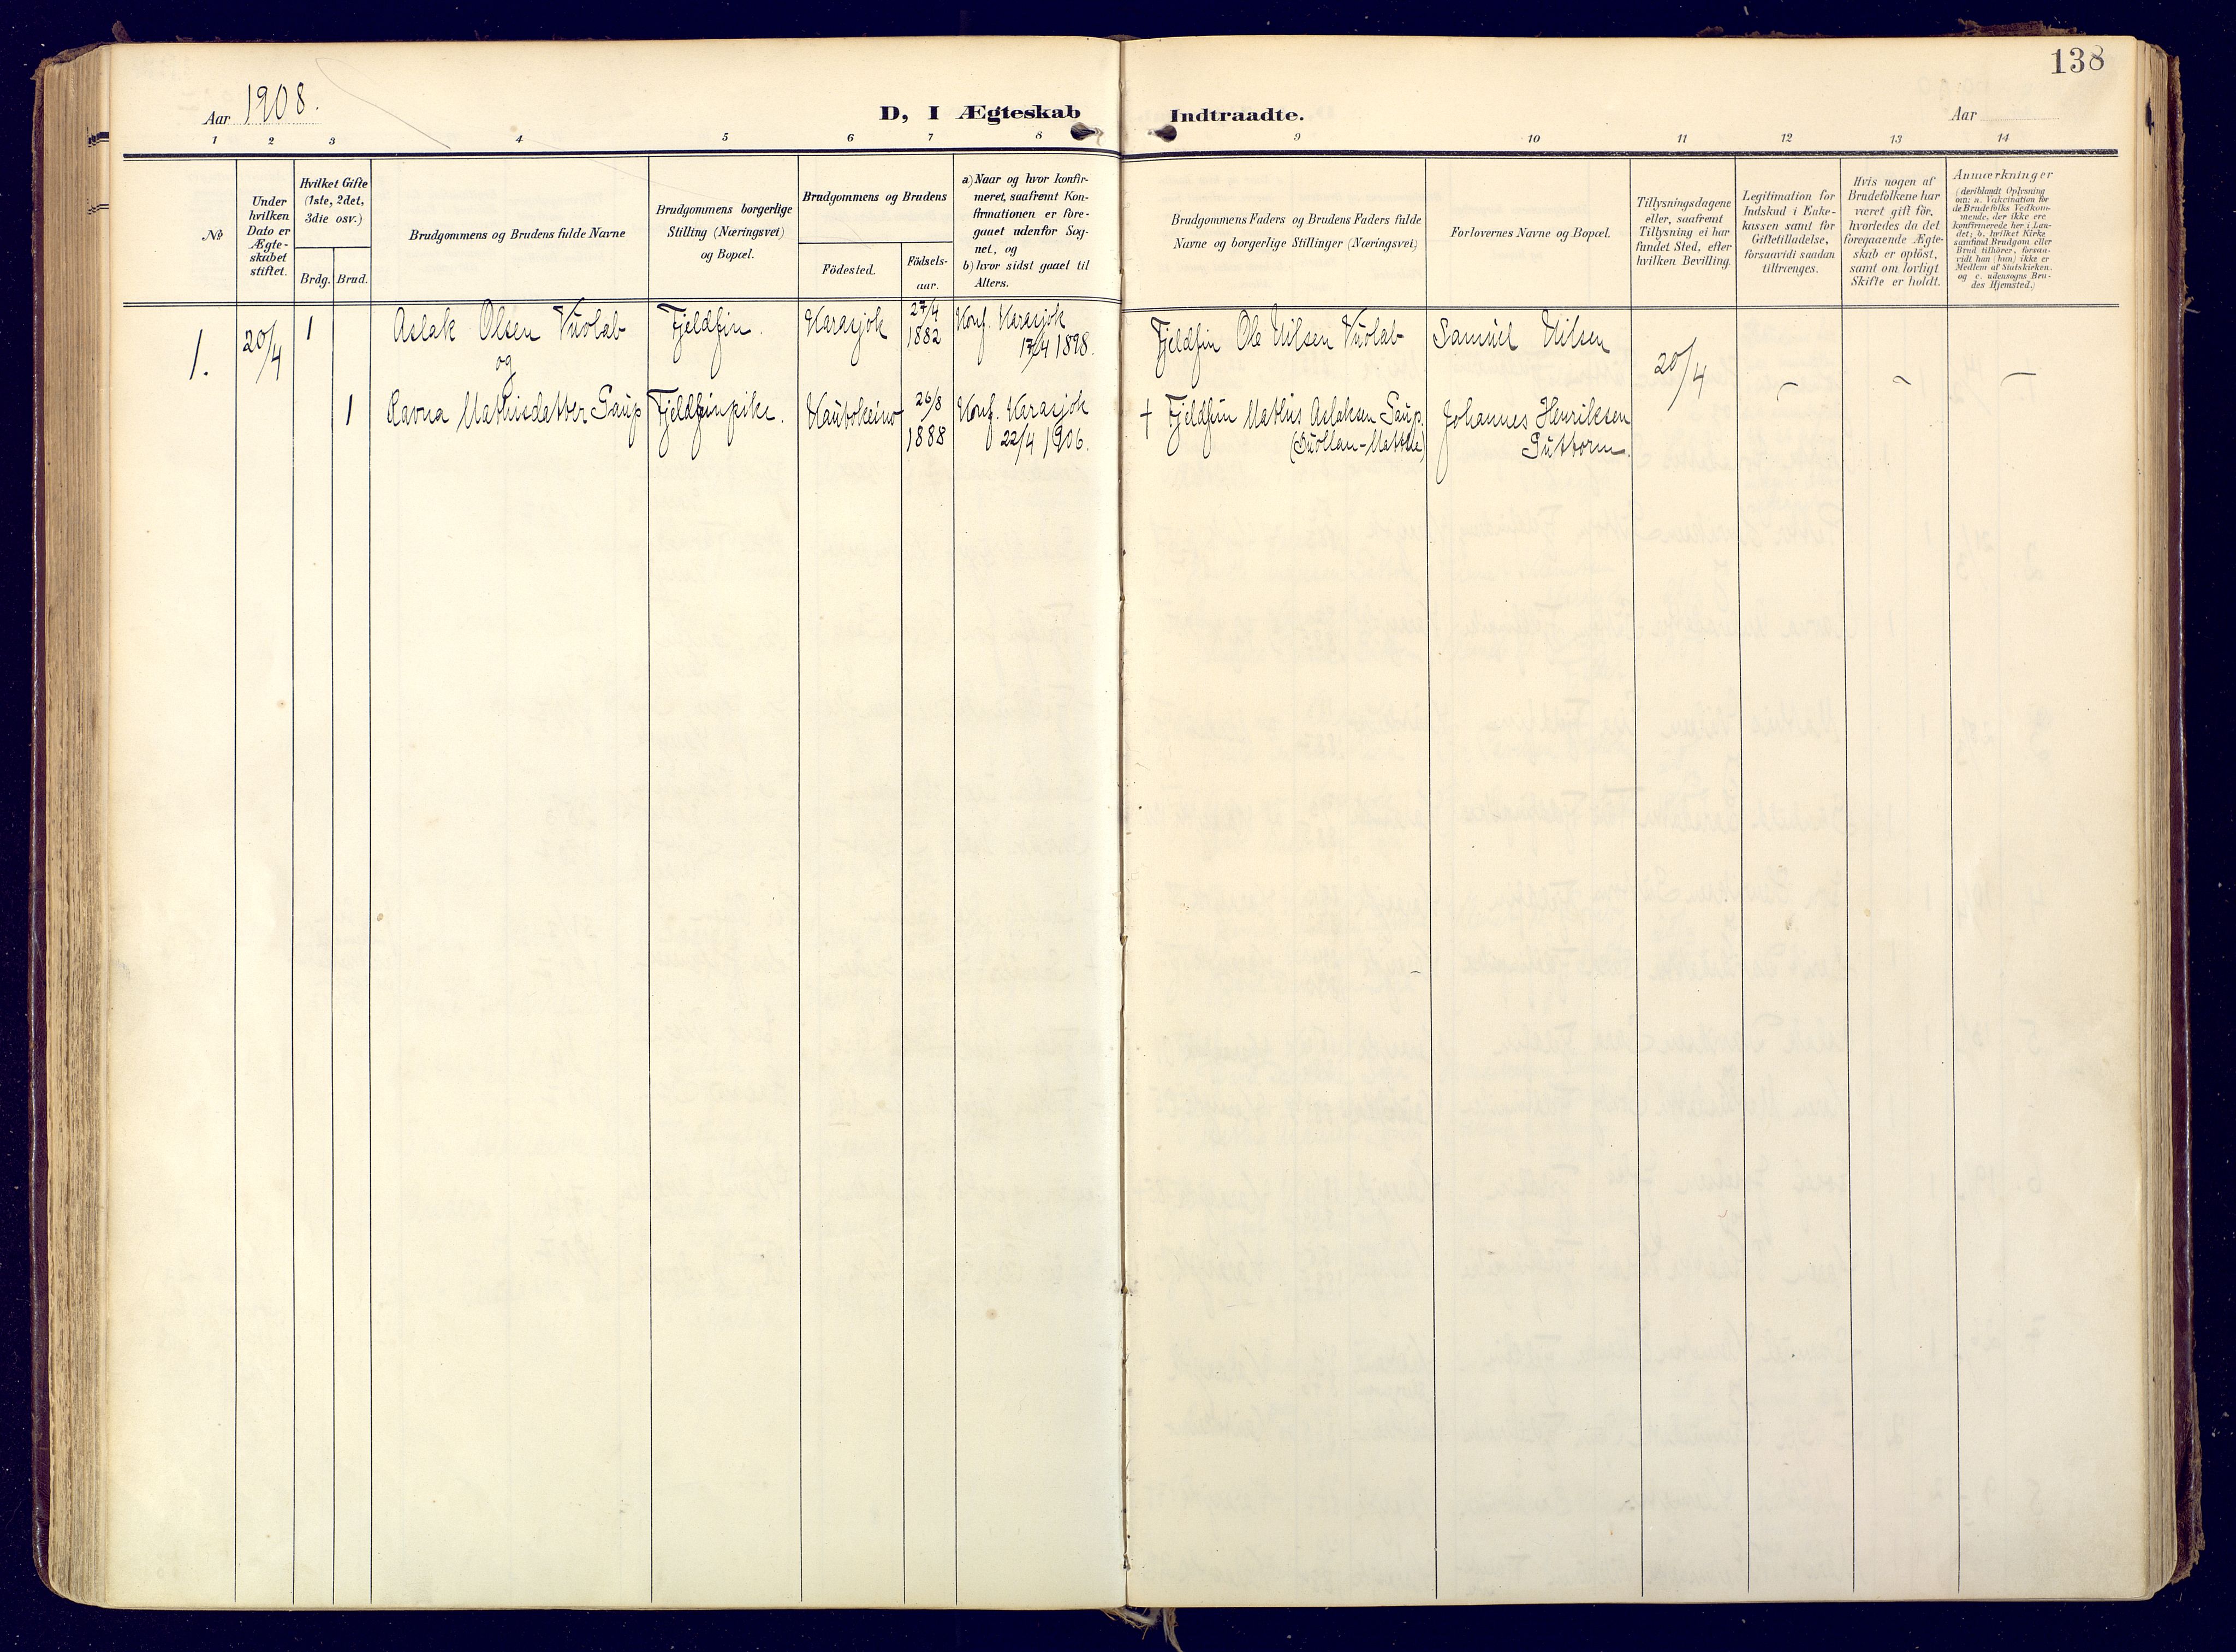 138
Aar 1908.
D, I Ægteskab Indtraadte.
Aar
1 2 3 4 5 6 7 8 9 10 11 12 13 14
No
Under
hvilken
Dato er
Ægte-
skabet
stiftet.
Hvilket Gifte
(1ste, 2det,
3die osv.)
Brdg. Brud.
Brudgommens og Brudens fulde Navne
Brudgommens borgerlige
Stilling (Næringsvei)
og Bopæl.
Brudgommens og Brudens
Födested.
Födsels-
aar.
a) Naar og hvor konfir-
meret, saafremt Kon-
firmationen er fore-
gaaet udenfor Sog-
net, og
b) hvor sidst gaaet til
Alters.
Brudgommens Faders og Brudens Faders fulde
Navne og borgerlige Stillinger (Næringsvei)
Forlovernes Navne og Bopæl.
Tillysningsdagene
eller, saafremt
Tillysning ei har
fundet Sted, efter
hvilken Bevilling.
Legitimation for
Indskud i Enke-
kassen samt for
Giftetilladelse,
forsaavidt saadan
tiltrænges.
Hvis nogen af
Brudefolkene har
været gift för,
hvorledes da det
foregaaende Ægte-
skab er oplöst,
samt om lovligt
Skifte er holdt.
Anmærkninger
(deriblandt Oplysning
om: a. Vakcination for
de Brudefolks Vedkom-
mende, der ikke ere
konfirmerede her i Lan-
det; b. hvilket Kirke
samfund Brudgom eller
Brud tilhörer, forsaa-
vidt han (hun) ikke er
Medlem af Statskirken,
og c. udensogns Bru-
des Hjemsted.)
1. 20/4 1 Aslak Olsen Vuolab Fjeldfin. Karasjok 27/4 1882 Konf. Karasjok
17/4 1898.
Fjeldfin Ole Nilsen Vuolab Samuel Nilsen 20/4 - - -
og
1 Ravna Mathisdatter Gaup Fjeldfinpike. Kautokeino 26/8 1888 Konf. Karasjok
22/4 1906.
† Fjeldfin Mathis Aslaksen Gaup. Johannes Henriksen
Guttorm.